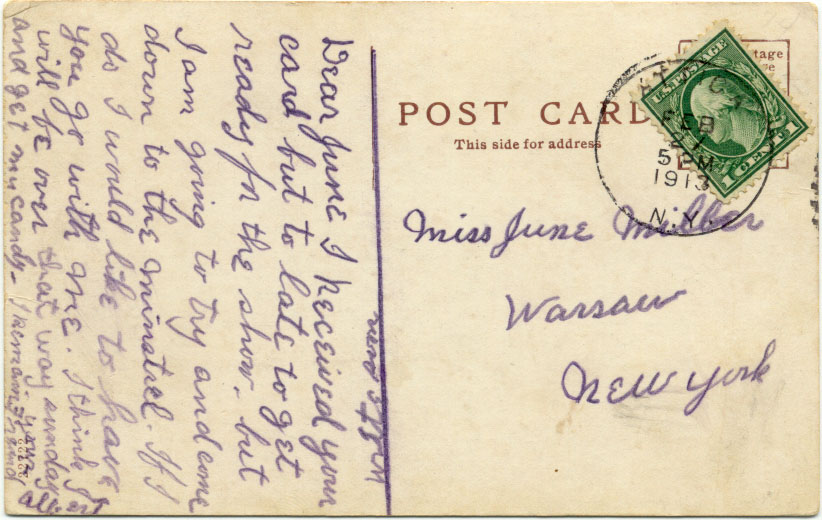 POST CARD
This side for address
U.S. POSTAGE
1 CENT 1
FEB
27
5 PM
1913
N.Y.
Miss June Miller
Warsaw
New York
Dear June I received your
card but to late to get
ready for the show, but
I am going to try and come
down to the minstrel. If I
do I would like to have
you go with me. I think I
will be over that way sunday
and get my candy- I remain your
friend
write soon